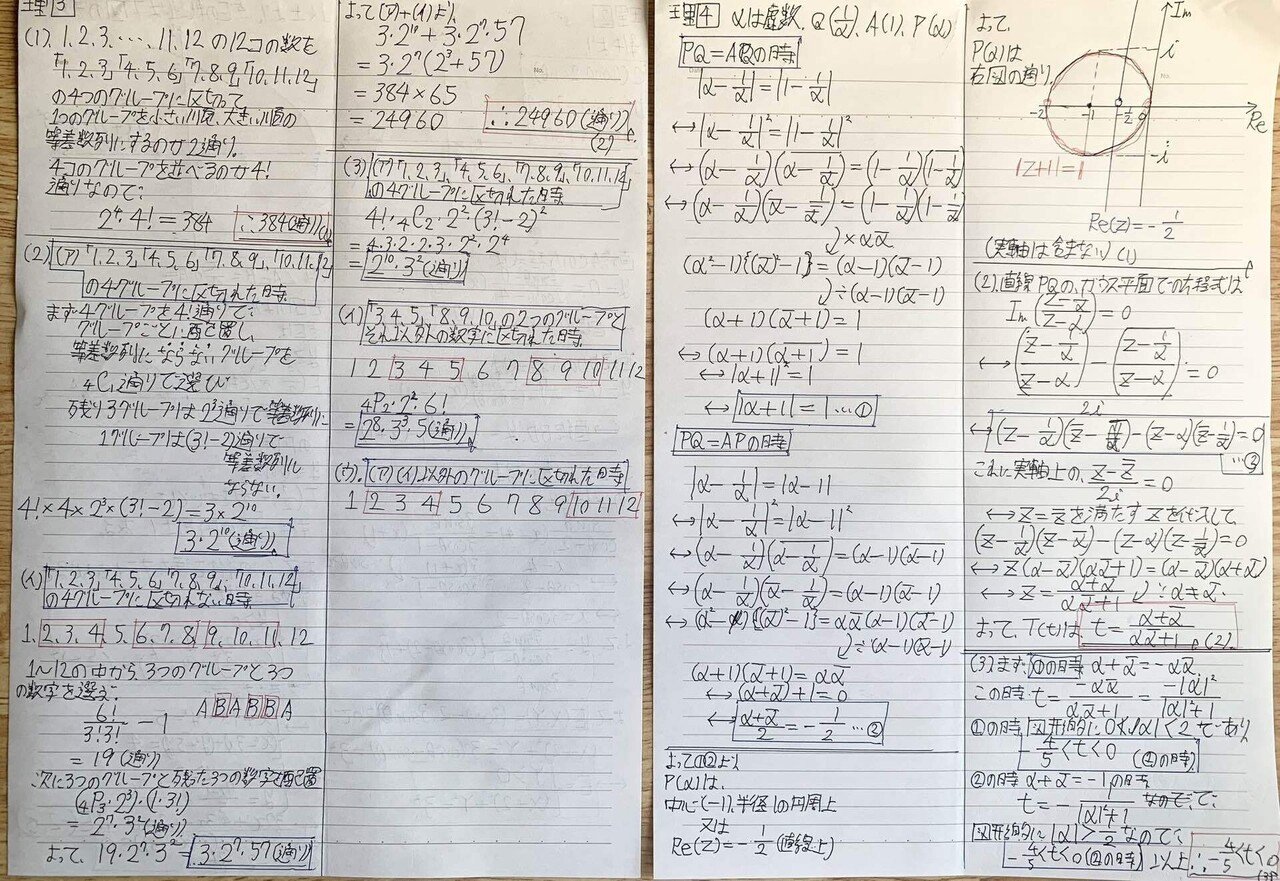 理3
(1). 1、2、3、…、11、12の12コの数を
「1、2、3」「4、5、6」「7、8、9」「10、11、12」
の4つのグループに区切って
1つのグループを小さい順、大きい順の
等差数列にするのが2通り。
4コのグループを並べるのが4!
通りなので
2⁴・4! = 384 ∴384(通り)(1)
(2) (ア)「1、2、3」「4、5、6」「7、8、9」「10、11、12」
の4グループに区切れた時
まず4グループを4!通りで
グループごとに配置し
等差数列にならないグループを
₄C₁通りで選び
残り3グループは2³通りで等差数列に
1グループは(3!-2)通りで
等差数列に
ならない。
4!×4×2³×(3!-2)=3×2¹⁰
3・2¹⁰(通り)
(イ)「1、2、3」「4、5、6」「7、8、9」「10、11、12」
の4グループに区切れない時
1、2、3、4、5、6、7、8、9、10、11、12
1〜12の中から3つのグループと3つ
の数字を選ぶ
6!/3!3! - 1 ABABBA
= 19(通り)
次に3つのグループと残った3つの数字で配置
(₄P₃・2³)・(1・3!)
= 2⁷・3²(通り)
よって、19・2⁷・3² = 3・2⁷・57(通り)
よって(ア)+(イ)より
3・2¹⁰+3・2⁷・57
= 3・2⁷(2³+57)
= 384×65
= 24960 ∴24960(通り)
(2)
(3) (ア)「1、2、3」「4、5、6」「7、8、9」「10、11、12」
の4グループに区切れた時
4!・₄C₂・2²・(3!-2)²
= 4・3・2・2・3・2²・2⁴
= 2¹⁰・3²(通り)
(イ)「3、4、5」「8、9、10」の2つのグループと
それ以外の数字に区切れた時
1 2 3 4 5 6 7 8 9 10 11 12
₄P₂・2²・6!
= 2⁸・3³・5(通り)
(ウ). (ア)(イ)以外のグループに区切れた時
1 2 3 4 5 6 7 8 9 10 11 12
理4 αは虚数、Q(1/α)、A(1)、P(α)
PQ=AQの時
|α-1/α|=|1-1/α|
↔|α-1/α|²=|1-1/α|²
↔(α-1/α)(α̅-̅1̅/̅α̅)=(1-1/α)(1̅-̅1̅/̅α̅)
↔(α-1/α)(α̅-1/α̅)=(1-1/α)(1-1/α̅)
×αα̅
(α²-1){(α̅)²-1}=(α-1)(α̅-1)
÷(α-1)(α̅-1)
(α+1)(α̅+1)=1
↔(α+1)(α̅+̅1̅)=1
↔|α+1|²=1
↔|α+1|=1…①
PQ=APの時
|α-1/α|=|α-1|
↔|α-1/α|²=|α-1|²
↔(α-1/α)(α̅-̅1̅/̅α̅)=(α-1)(α̅-̅1̅)
↔(α-1/α)(α̅-1/α̅)=(α-1)(α̅-1)
↔(α²-1){(α̅)²-1}=αα̅(α-1)(α̅-1)
÷(α-1)(α̅-1)
(α+1)(α̅+1)=αα̅
↔(α+α̅)+1=0
↔(α+α̅)/2=-1/2…②
よって①②より
P(α)は、
中心(-1)、半径1の円周上
又は
Re(z)=-1/2(直線上)
よって、
P(α)は
右図の通り
Im
i
-2 -1 -1/2 0
Re
-i
|z+1|=1
Re(z)=-1/2
(実軸は含まない)(1)
(2). 直線PQの、ガウス平面での方程式は
Im((z-1/α)/(z-α))=0
↔{((z-1/α)/(z-α))-((z̅-̅1̅/̅α̅)/(z̅-̅α̅))}/2i=0
↔(z-1/α)(z̅-α̅)-(z-α)(z̅-1/α̅)=0
…③
これに実軸上の、(z-z̅)/2i=0
↔z=z̅を満たすzを代入して、
(z-1/α)(z-α̅)-(z-α)(z-1/α̅)=0
↔z(α-α̅)(αα̅+1)=(α-α̅)(α+α̅)
↔z=(α+α̅)/(αα̅+1) ∵α≠α̅
よって、T(t)は t=(α+α̅)/(αα̅+1) (2)
(3). まず、①の時 α+α̅=-αα̅
この時 t=-αα̅/(αα̅+1)=-|α|²/(|α|²+1)
①の時 図形的に0<|α|<2であり
-4/5<t<0 (①の時)
②の時 α+α̅=-1の時
t=-1/(|α|²+1) なので、
図形的に|α|>1/2なので
-4/5<t<0(②の時) 以上∴-4/5<t<0
(3)